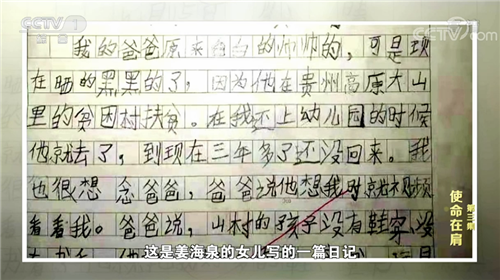 CCTV
CCTV.com
我的爸爸原来白白的帅帅的，可是现
在晒的黑黑的了，因为他在贵州高原大山
里的贫困村扶贫。在我还上幼儿园的时候
他就去了，到现在三年多了还没回来。我
也很想念爸爸，爸爸说他想我时就视频
看看我。爸爸说，山村的孩子没有鞋穿，没
第三集
使命在肩
这是姜海泉的女儿写的一篇日记